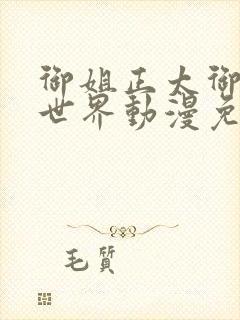 御姐正大御
世界動漫免
毛質